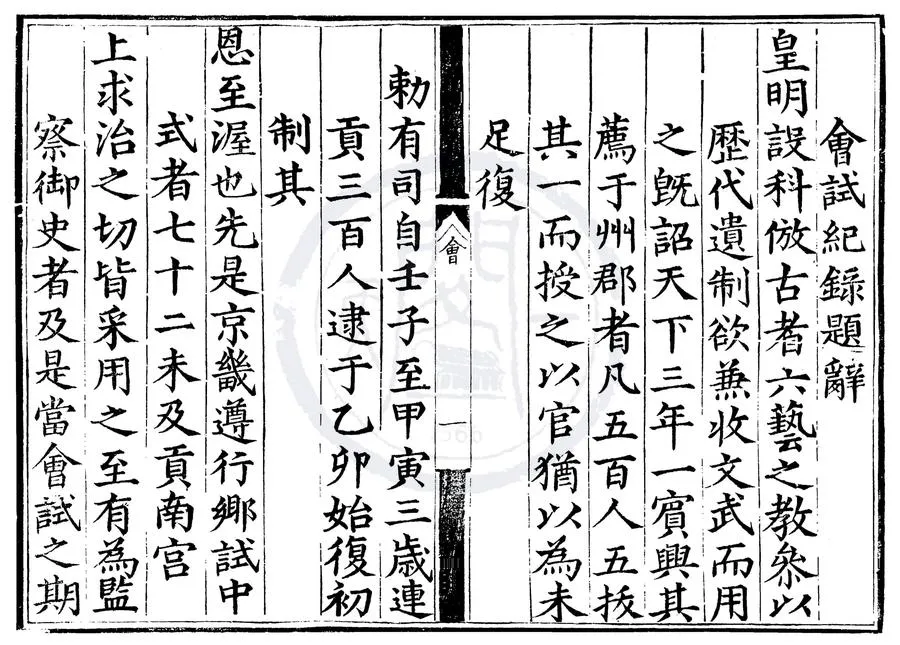 會試紀錄題辭
皇明設科倣古者六藝之教參以
歷代遺制欲兼收文武而用
之旣詔天下三年一賓興其
薦于州郡者凡五百人五拔
其一而授之以官猶以為未
足復
會
一
勑有司自壬子至甲寅三歲連
貢三百人逮于乙卯始復初
制其
恩至渥也先是京畿遵行鄉試中
式者七十二未及貢南宮
上求治之切皆采用之至有為監
察御史者及是當會試之期